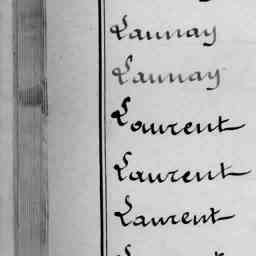 Launay
Launay
Laurent
Laurent
Laurent